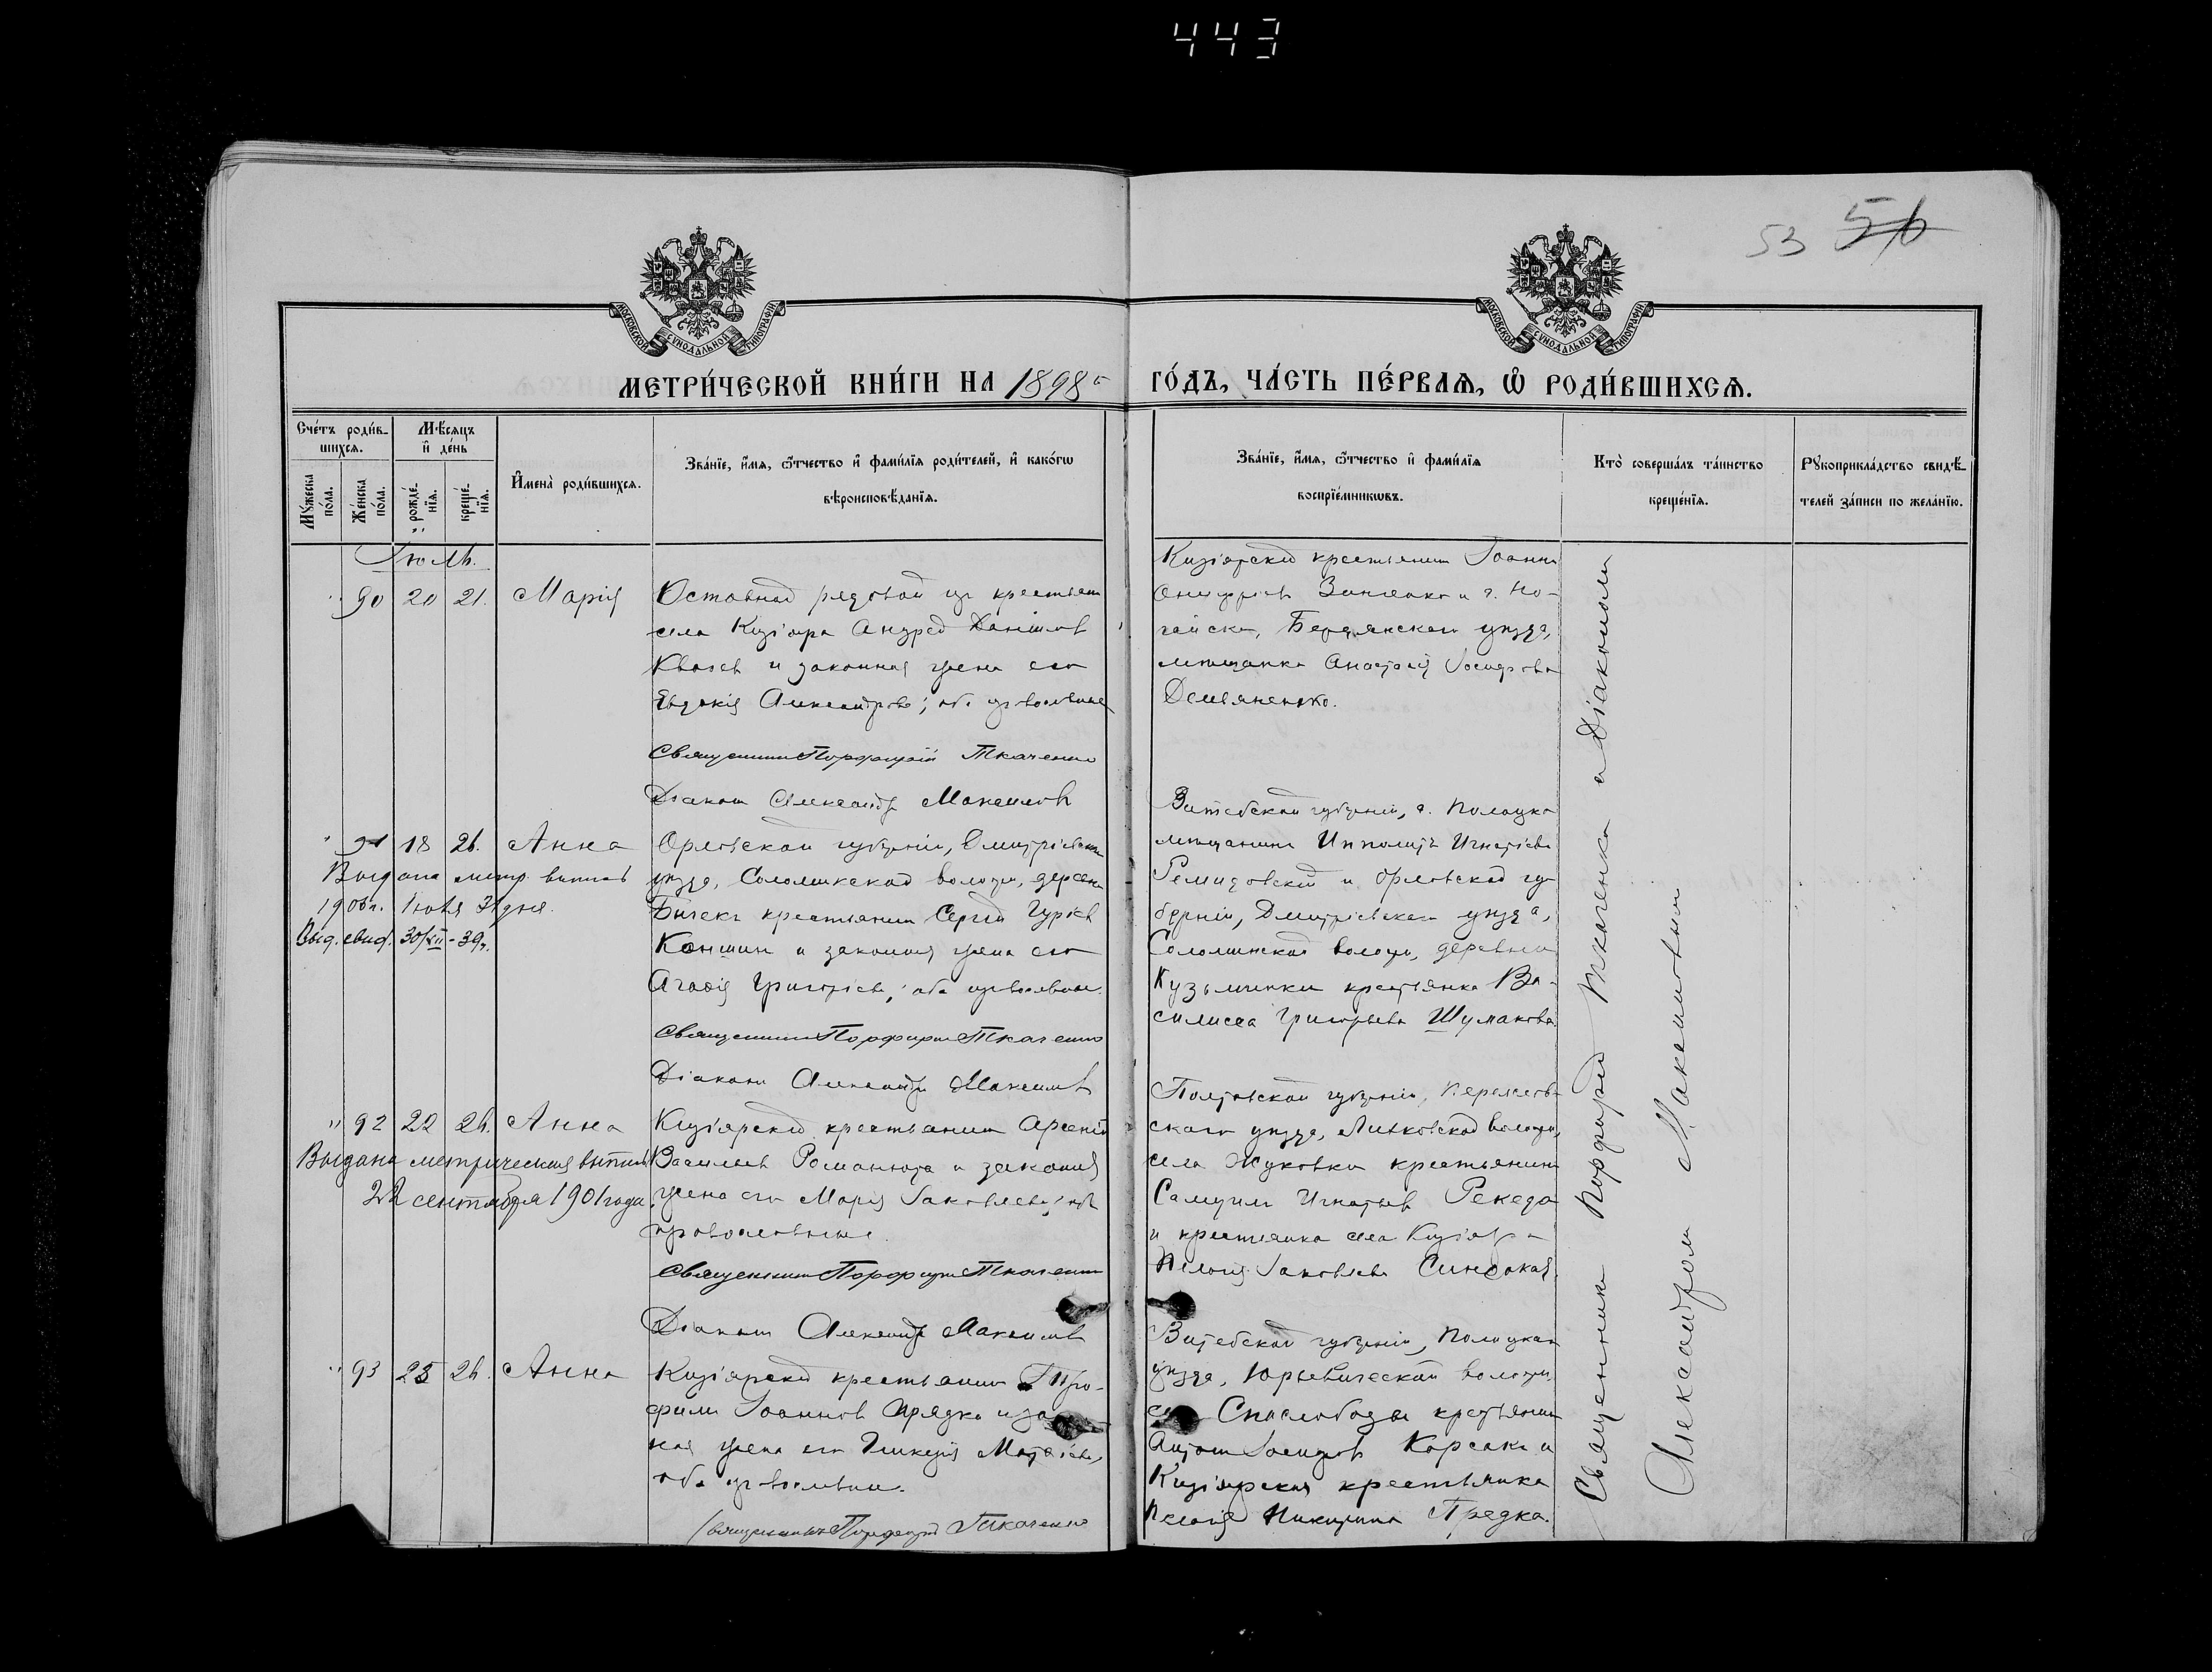 443
53 56
МОСКОВСКОЙ СУНОДАЛЬНОЙ ТИПОГРАФІИ
МОСКОВСКОЙ СУНОДАЛЬНОЙ ТИПОГРАФІИ
МЕТРИ́ЧЕСКОЙ КНИ́ГИ НА 1898й ГО́ДЪ, ЧА́СТЬ ПЕ́РВАѦ, Ѡ҆ РОДИ́ВШИХСѦ.
Сче́тъ роди́в-
шихсѧ.
Мꙋжеска по́ла.
Же́нска по́ла.
Мѣ́сяцъ и҆ де́нь
рожде́-нїѧ.
креще́-нїѧ.
И҆мена̀ роди́вшихсѧ.
Зва́нїе, и҆́мѧ, ѻ҆́тчество и҆ фами́лїѧ роди́телей, и҆ како́гѡ
вѣроисповѣ́данїѧ.
Зва́нїе, и҆́мѧ, ѻ҆́тчество и҆ фами́лїѧ
воспрїе́мникѡвъ.
Кто̀ соверша́лъ та́инство
креще́нїѧ.
Рꙋкоприкла́дство свидѣ́-
телей за́писи по жела́нїю.
Іюль.
" 90 20 21. Марія
Отставной рядовой изъ крестьян
села Кизіяра Андрей Даніилов
и законная жена его
Евдокія Александрова; оба православные
Священникъ Порфирій Ткаченко
Діаконъ Александръ Максимовъ
Кизіярскій крестьянинъ Іоаннъ
Онуфріевъ и г. Но-
гайска, Бердянскаго уѣзда,
мѣщанка Анастасія Іосифова
Демьяненко.
" 91 18 26. Анна
Выдана метр. выпись
190 г. Іюля 31 дня.
Выд. свид. 30/XII-39г.
Орловской губерніи, Дмитріевскаго
уѣзда, Соломинской волости, деревни
крестьянинъ Сергій Гуріев
Коншин и законная жена его
Агаѳія Григоріева; оба православные.
Священникъ Порфирій Ткаченко
Діаконъ Александръ Максимовъ
Витебской губерніи, г. Полоцка
мѣщанинъ Ипполитъ Игнатіевъ
и Орловской гу-
берніи, Дмитріевскаго уѣзда,
Соломинской волости, деревни
Кузьминки крестьянка Ва-
силисса Григорьева Шумакова.
" 92 22 26. Анна
Выдана метрическая выпись
22 сентября 1901 года
Кизіярскій крестьянинъ Арсеній
Васильевъ Романюта и законная
жена его Марія Іаковлева; оба
православные.
Священникъ Порфирій Ткаченко
Діаконъ Александръ Максимовъ
Полтавской губерніи, Переяслав-
скаго уѣзда, волости,
села Жуковки крестьянинъ
Самуилъ Игнатьев Рекеда
и крестьянка села Кизіяра
Пелагія Іаковлева Синоокая.
" 93 25 26. Анна
Кизіярскій крестьянинъ Тро-
фимъ Іоаннов Прядка и за
ная жена его Гликерія Матѳіева,
оба православные.
Священникъ Порфирій Ткаченко
Витебской губерніи, Полоцкаго
уѣзда, Юрьевической волости,
крестьянинъ
Антонъ Іосифов Корсак и
Кизіярская крестьянка
Пелагія Никитина Прядка.
Священникъ Порфирій Ткаченко съ Діакономъ
Александромъ Максимовымъ